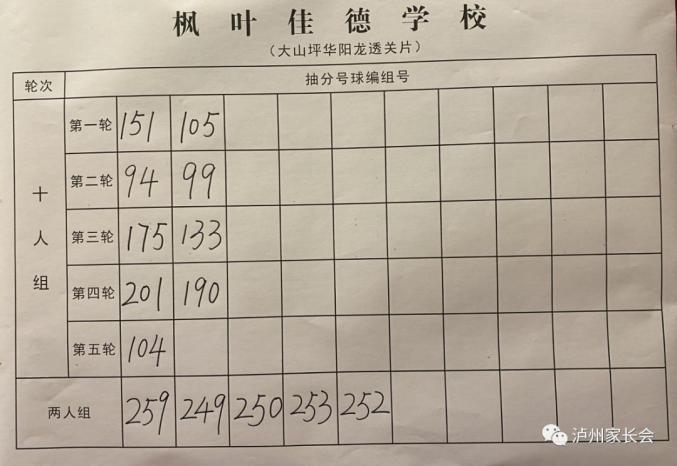 枫叶佳德学校
（大山坪华阳龙透关片）
轮次 抽分号球编组号
十人组
第一轮 151 105
第二轮 94 99
第三轮 175 133
第四轮 201 190
第五轮 104
两人组 259 249 250 253 252
泸州家长会